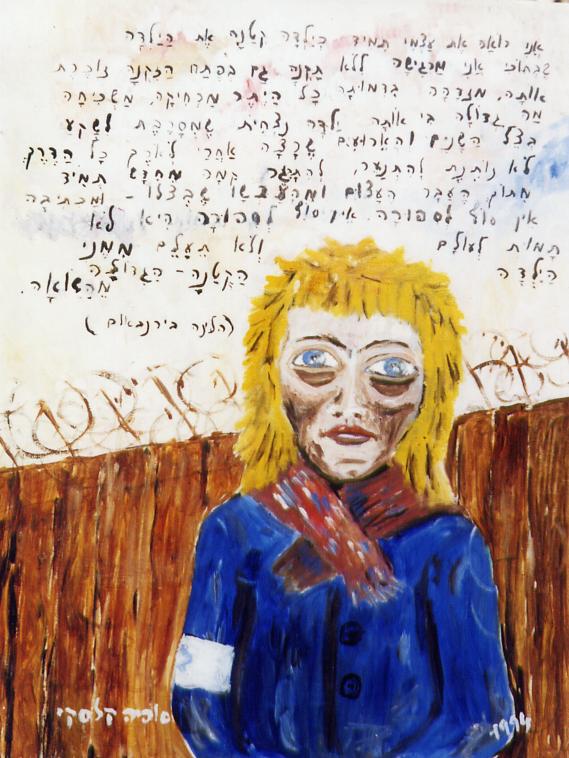 אני רואה את עצמי תמיד כילדה קטנה את הילדה
שבתוכי אני מרגישה ללא תקנה גם בפתח הזקנה זוכרת
אותה, בדמותה כל היתר מרחיקה, משכיחה
מה גדולה בי אותה ילדה נצחית שמסרבת לשקע
בצל השנים והארועים שרצה אחרי לארך כל הדרך
לא נותנת להתנער, קמה מחדש תמיד
מתוך העבר העצום ומהעכשו שבצלו - ומכתיבה
אין סוף לספורה. אין סוף לספורה היא לא
תמות לעולם ולא תעלם ממני
הילדה הקטנה - הגדולה
מהשואה.
(הלינה בירנבאום)
סופיה קלסקי
1994